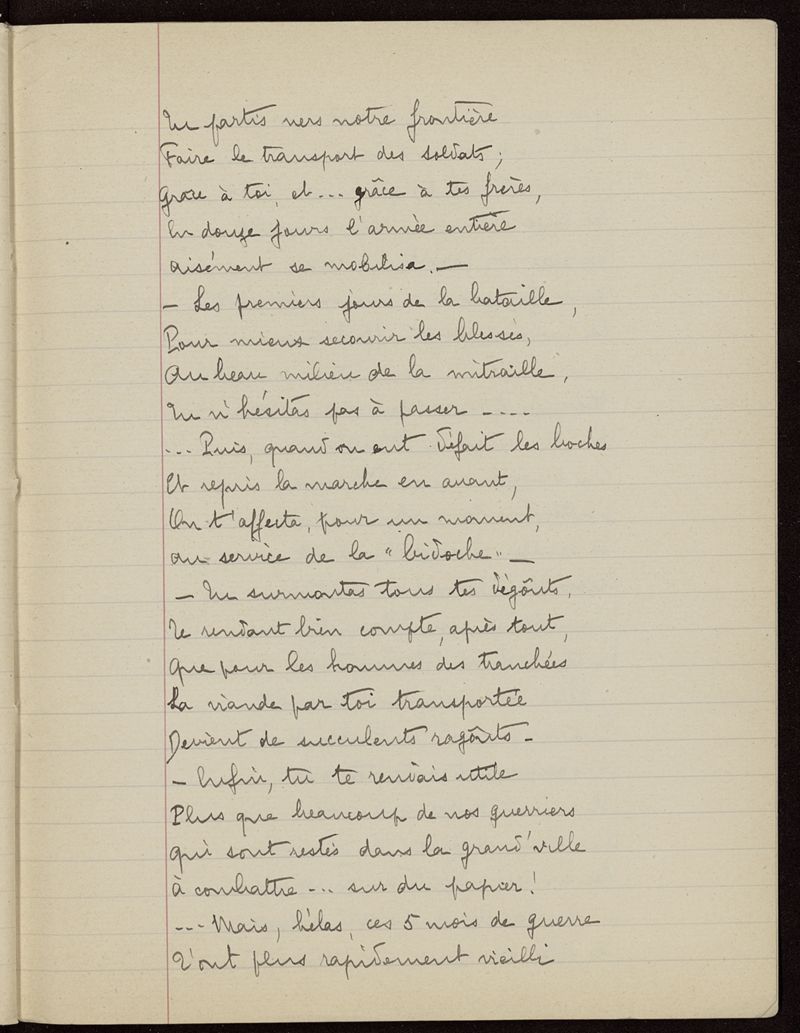 Tu partis vers notre frontière
Faire le transport des soldats ;
Grace à toi, et... grâce à tes frères,
En douze jours l'armée entière
aisément se mobilisa. —
— Les premiers jours de la bataille,
Pour mieux secourir les blessés,
Au beau milieu de la mitraille,
Tu n'hésitas pas à passer ....
... Puis, quand on eut défait les boches
Et repris la marche en avant,
On t'affecta, pour un moment,
au service de la "bidoche" —
— Tu surmontas tous tes dégoûts,
Te rendant bien compte, après tout,
Que pour les hommes des tranchées
La viande par toi transportée
Devient de succulents ragoûts -
— Enfin, tu te rendais utile
Plus que beaucoup de nos guerriers
Qui sont restés dans la grand'ville
à combattre ... sur du papier !
... Mais, hélas, ces 5 mois de guerre
T'ont plus rapidement vieilli